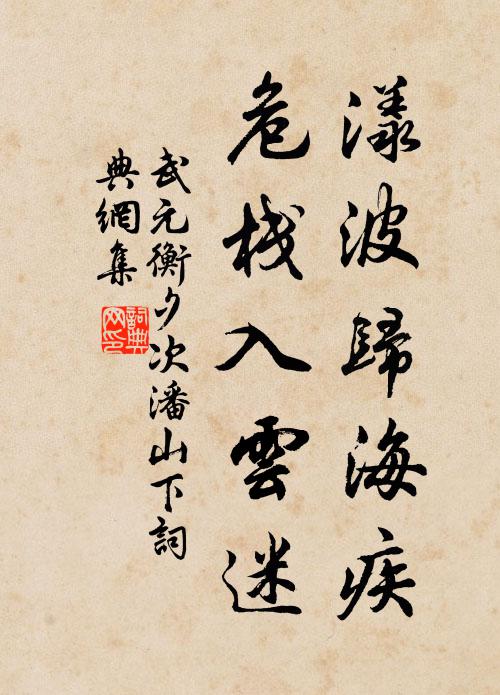 漾波歸海疾
危栈入雲迷
武元衡夕次潘山下詞
典網集
詞典
网印